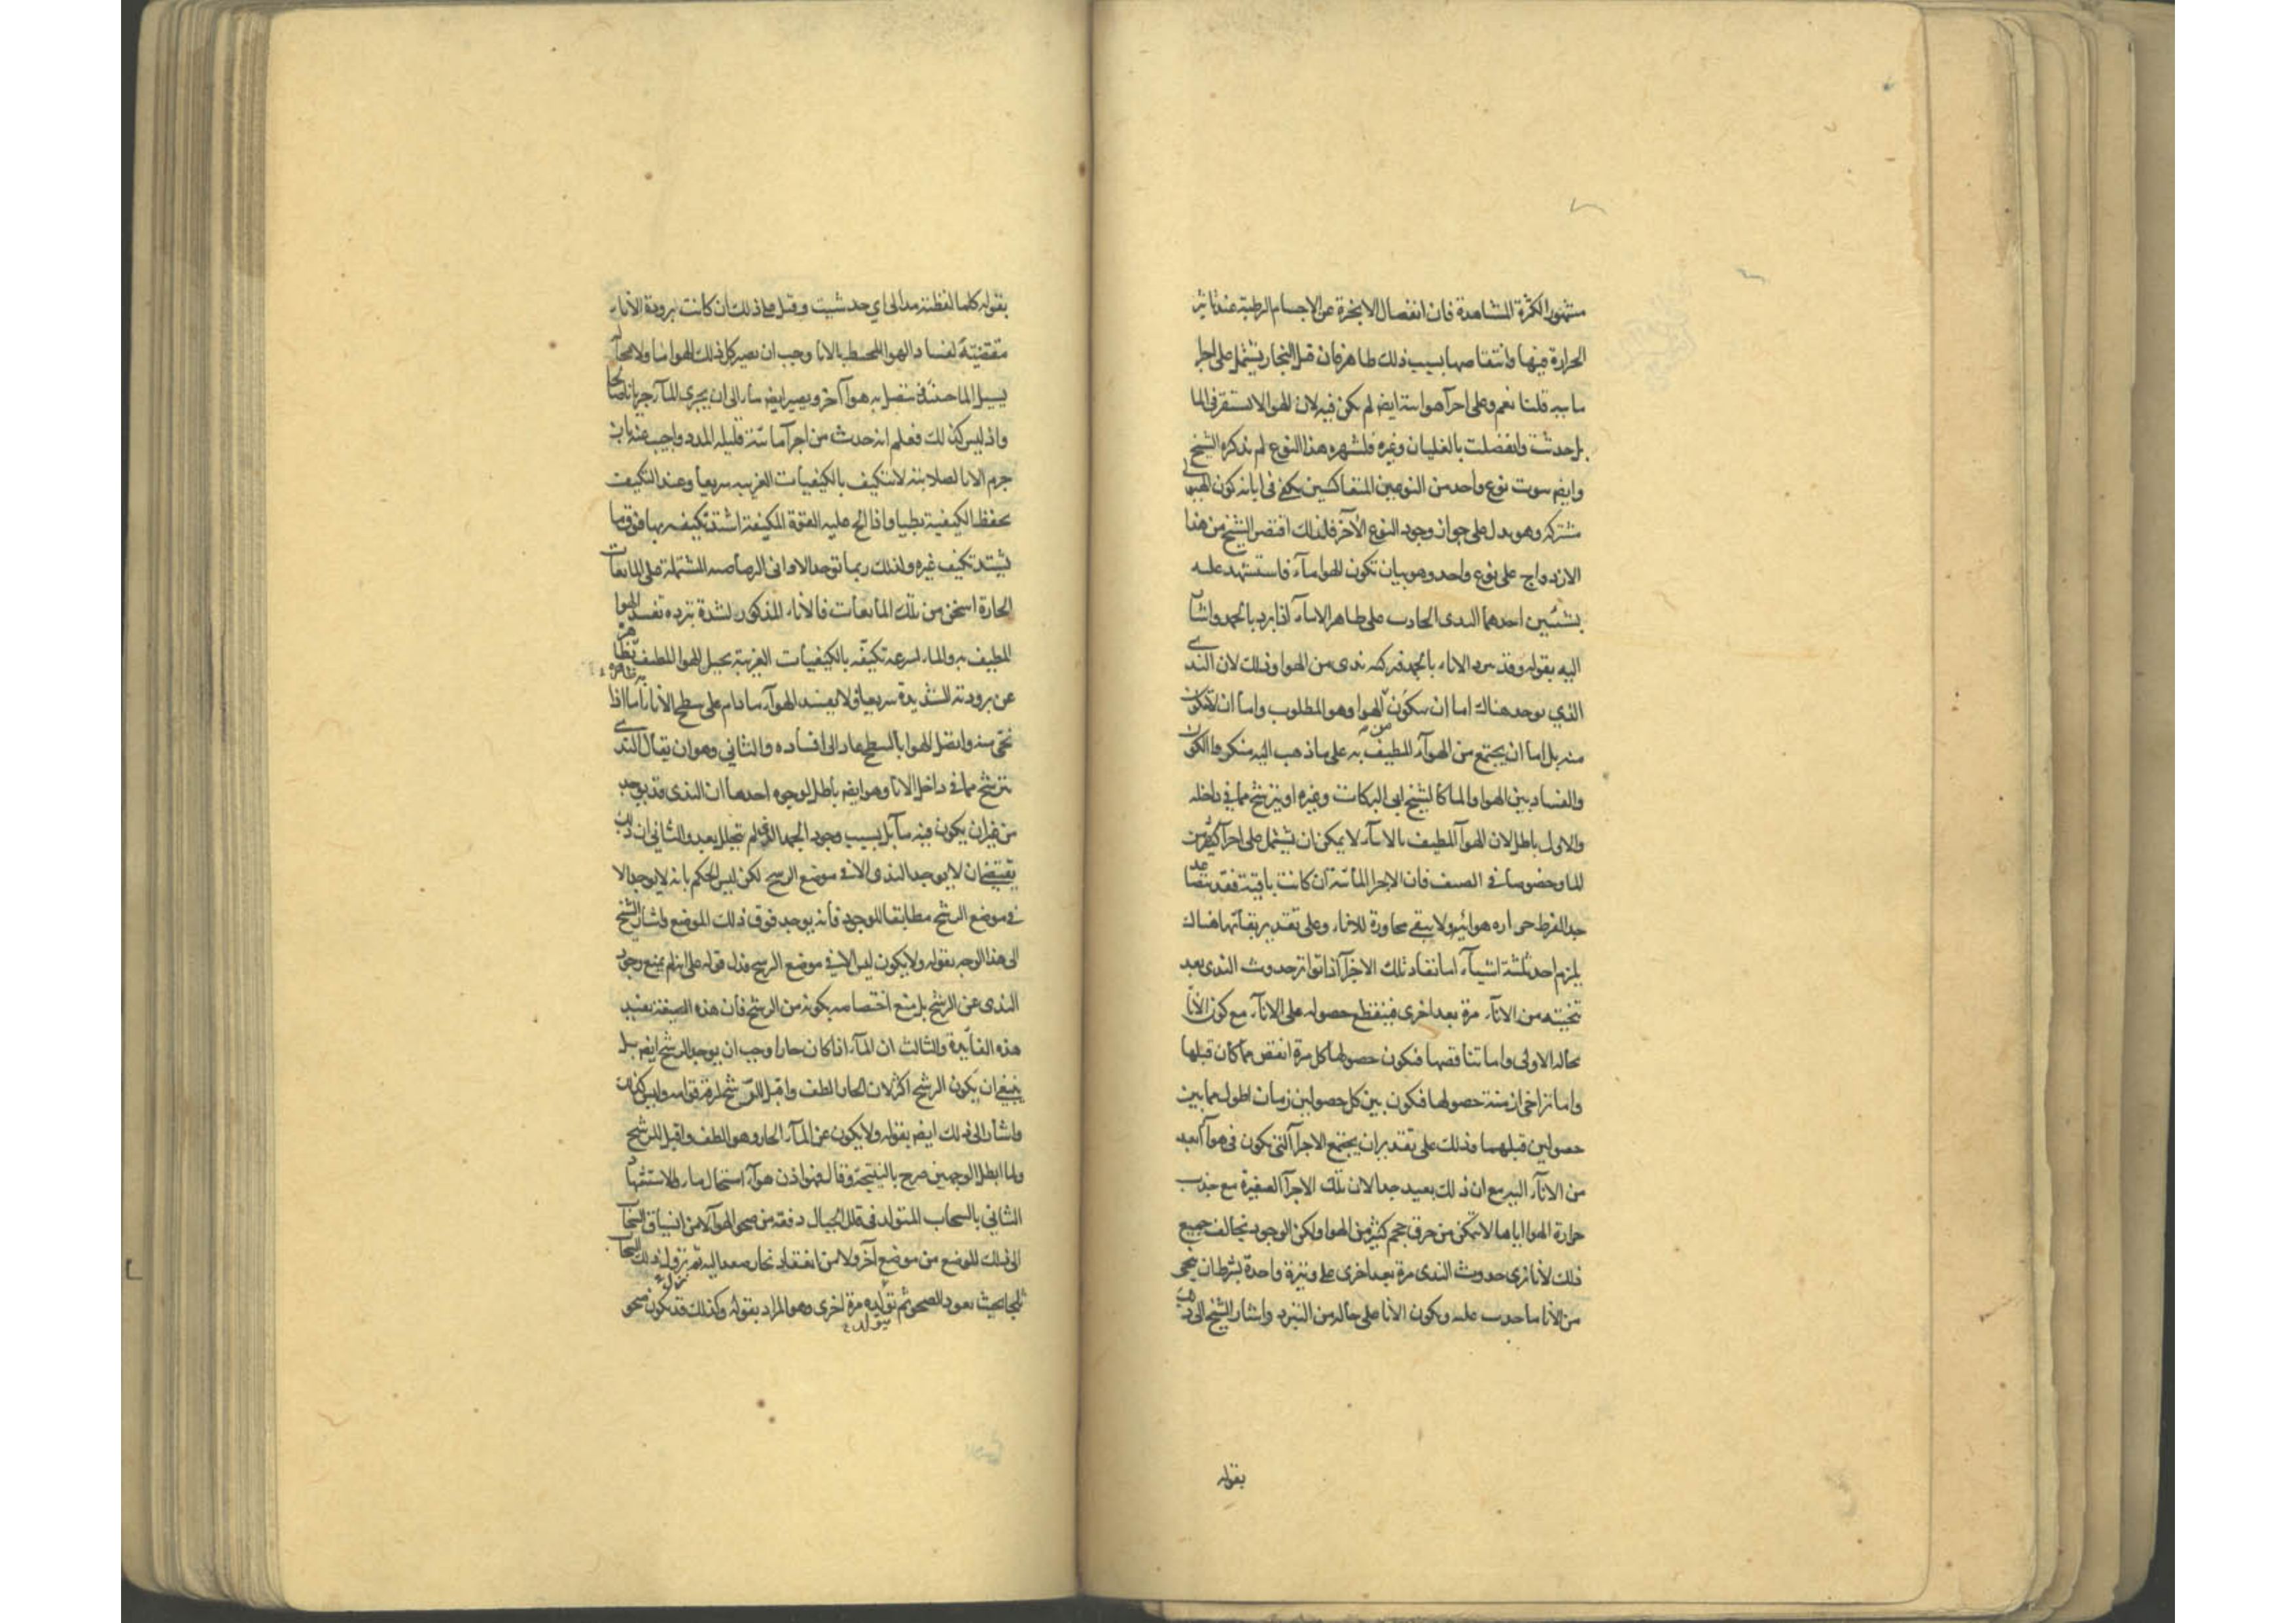 مشهور الكثرة المشاهدة فان انفصال الابخرة عن الاجسام الرطبة عند تاثير
الحرارة فيها وانتقاصها بسبب ذلك ظاهر فان قيل البخار يشتمل على اجزا
مائية قلنا نعم وعلى اجزآ هوائية ايضا لم يكن فيه لان الهوا لا تستقر فى الما
بل حدثت وانفصلت بالغليان وغيره فلشهرة هذا النوع لم يذكره الشيخ
وايضا ثبوت نوع واحد من النوعين المتعاكسين يكفى فى ابانة كون الهيولى
مشتركة وهو يدل على جواز وجود النوع الآخر فلذلك اقتصر الشيخ من هذا
الازدواج على نوع واحد وهو بيان تكون الهوا مآء فاستشهد عليه
بشيئين احدهما الندى الحادث على ظاهر الانآء اذا برد بالجمد واشار
اليه بقوله وقد يبرد الاناء بالجمد فيركبه ندى من الهوا وذلك لان الندى
الذي يوجد هناك اما ان يتكون من الهوا وهو المطلوب واما ان لا يتكون
منه بل اما ان يجتمع من الهوآء المطيف به على ما ذهب اليه منكروا الكون
والفساد بين الهوا والما كالشيخ ابى البركات وغيره او يترشح مما في داخله
والاول باطل لان الهوآ المطيف بالانآء لا يمكن ان يشتمل على اجزآ كثيرة من
الما وخصوصا في الصيف فان الاجزا المائية ان كانت باقية فقد تتصاعد
جدا لفرط حرارة هوائه ولا يبقى مجاورة للاناء وعلى تقدير بقآئها هناك
يلزم احد ثلثة اشيآء اما نفاد تلك الاجزآ اذا تواتر حدوث الندى بعد
تنحيته من الانآء مرة بعد اخرى فينقطع حصوله على الانآء مع كون الانآ
بحاله الاولى واما تناقصها فيكون حصولها كل مرة انقص مما كان قبلها
واما تراخى ازمنة حصولها فيكون بين كل حصولين زمان اطول مما بين
حصولين قبلهما وذلك على تقدير ان يجتمع الاجزآ التى يكون فى هوآ ابعد
من الانآء اليه مع ان ذلك بعيد جدا لان تلك الاجزآ الصغيرة مع جذب
حرارة الهوا اياها لا تتمكن من خرق حجم كثير من الهوا ولكن الوجود يخالف جميع
ذلك لانا نرى حدوث الندى مرة بعد اخرى على وتيرة واحدة بشرط ان ينحى
من الانا ما حدث عليه ويكون الانا على حاله من التبرد واشار الشيخ الى ذلك
بقوله
بقوله كلما لقطته مد الى اي حد شئت وقيل على ذلك ان كانت برودة الاناء
مقتضية لفساد الهوا المحيط بالانا وجب ان يصير كل ذلك الهوا ما ولا محالة
يسيل الما حينئذ فيتصل به هوآ آخر ويصير ايضا مآء الى ان يجرى المآء جريانا صالحا
واذ ليس كذلك فعلم انه حدث من اجزآ مائية قليلة المدد واجيب عنه بان
جرم الانا لصلابته لا يتكيف بالكيفيات الغريبة سريعا وعند التكيف
يحفظ الكيفية بطيا واذا الح عليه القوة المكيفة اشتد تكيفه بها فوق ما
يشتد تكيف غيره ولذلك ربما توجد الاوانى الرصاصية المشتملة على المايعات
الحارة اسخن من تلك المايعات فالاناء المذكور لشدة تبرده تفسد الهوا
المطيف به والماء لسرعة تكيفه بالكيفيات الغريبة يحيل الهوا المطيف بظاهره
به ظاهره
عن برودته الشديدة سريعا فلا يفسد الهوآء ما دام على سطح الاناء اما اذا
نحى منه واتصل الهوا بالسطح عاد الى افساده والثاني وهو ان يقال الندى
يترشح مما في داخل الانا وهو ايضا باطل لوجوه احدها ان الندى قد يوجد
من غير ان يكون فيه مآ بل بسبب وجود الجمد الذى لم يتحلل بعد والثانى ان ذلك
يقتضى ان لا يوجد الندى الا في موضع الرشح لكن ليس الحكم بانه لا يوجد الا
في موضع الرشح مطابقا للوجود فانه يوجد فوق ذلك الموضع واشار الشيخ
الى هذا الوجه بقوله ولا يكون ليس الا في موضع الرشح فدل قوله على انه لم يمنع وجود
الندى عن الرشح بل منع اختصاصه بكونه من الرشح فان هذه الصيغة تفيد
هذه الفائدة والثالث ان المآء اذا كان حارا وجب ان يوجد الرشح ايضا بل
ينبغى ان يكون الرشح اكثر لان الحار الطف واقبل للترشح لرقة قوامه وليس كذلك
واشار الى ذلك ايضا بقوله ولا يكون عن المآء الحار وهو الطف واقبل للرشح
ولما ابطل الوجهين صرح بالنتيجة وقال فهو اذن هوآء استحال مآء والاستشهاد
الثاني بالسحاب المتولد فى قلل الجبال دفعة من صحو الهوآ لا من انسياق السحاب
الى ذلك الموضع من موضع آخر ولا من انعقاد بخار صعد اليه ثم نزول ذلك السحاب
ثلجا بحيث يعود الصحو ثم تولده مرة اخرى وهو المراد بقوله وكذلك قد يكون صحو
يتولد